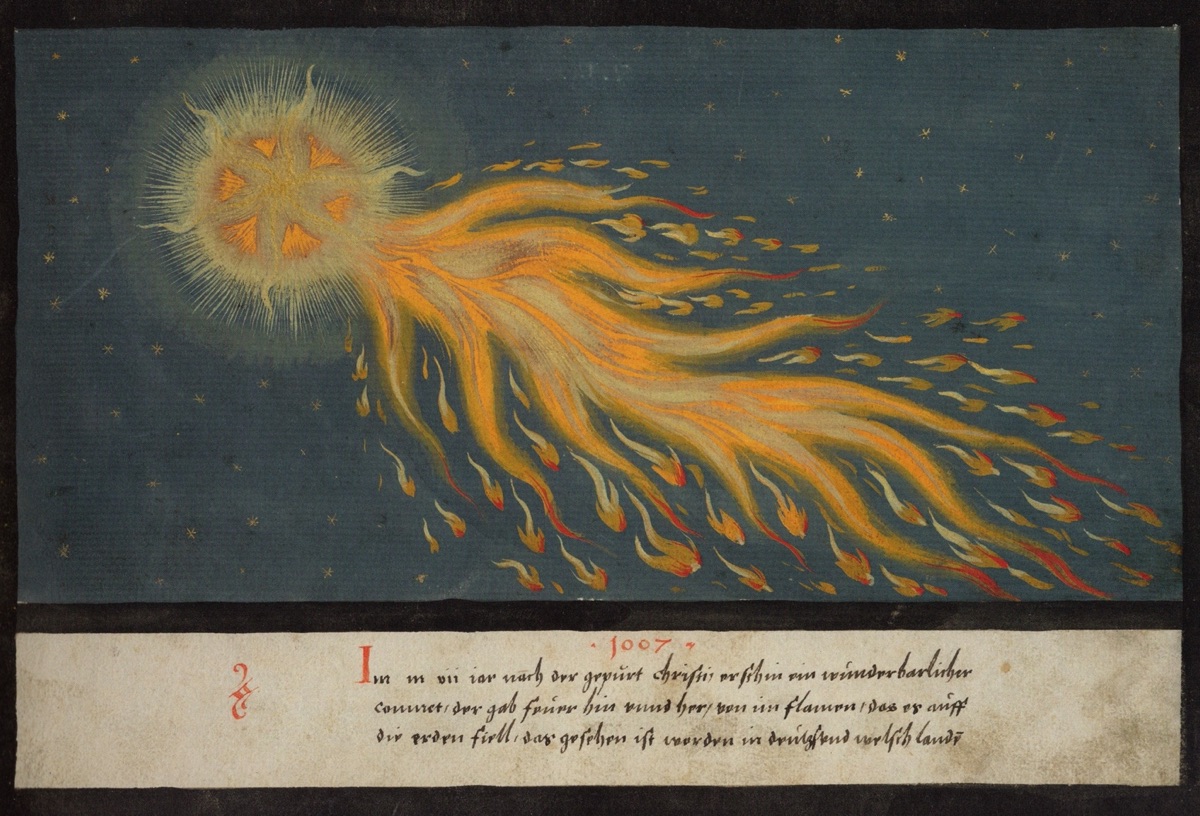 · 1007 ·
Im m vii iar nach der gepurt christi, erschin ein wunderbarlicher
commet, der gab feuer hin vnnd her, von im flamen, das es auff
die erden fiell, das gesehen ist worden in deutschvnd welsch landē